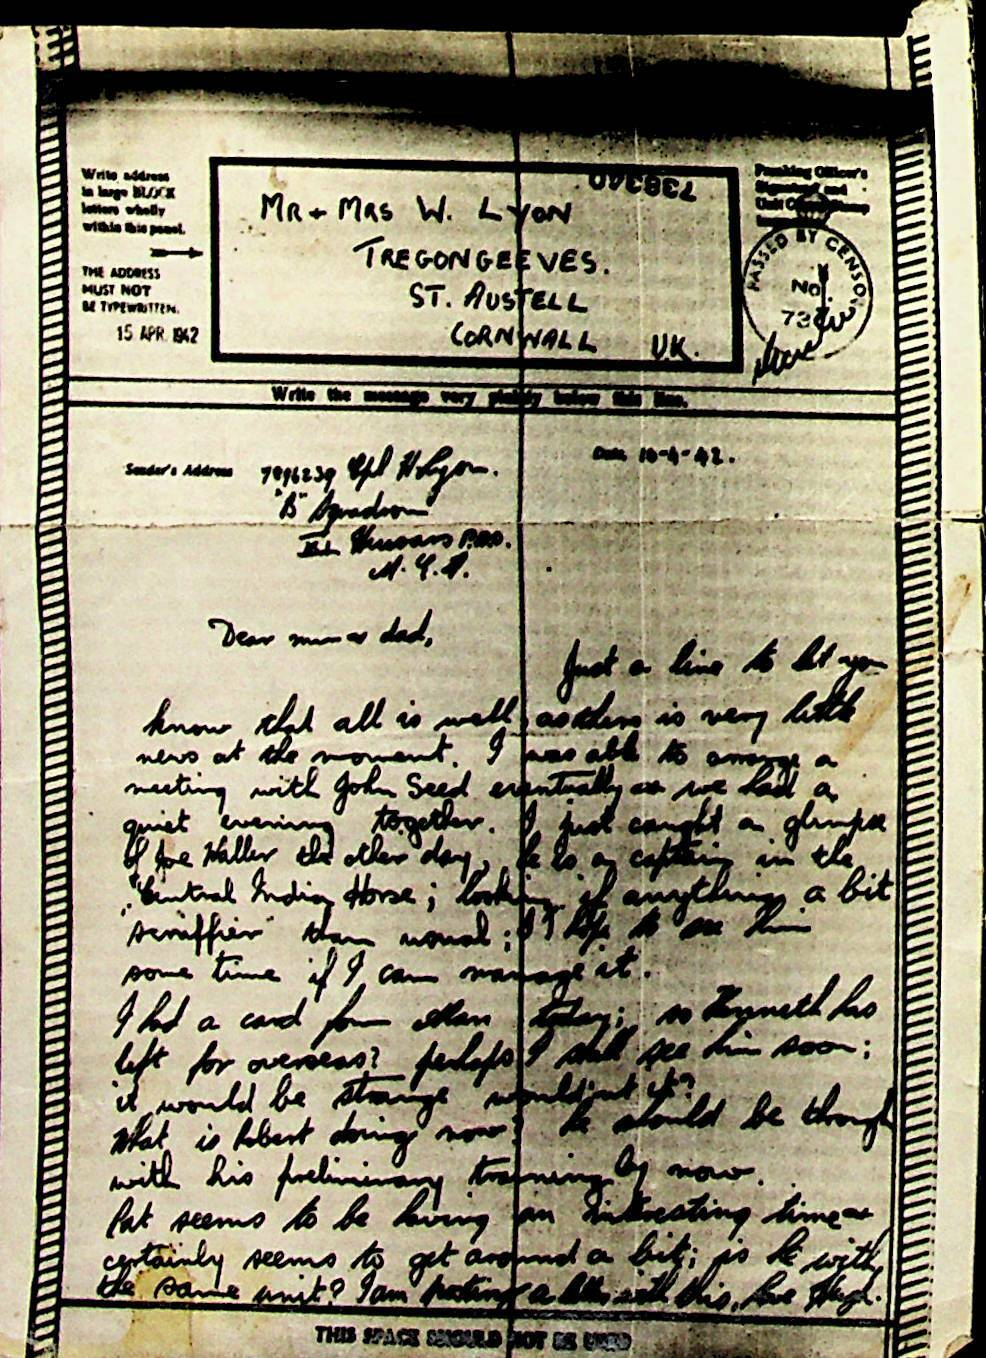 Write address
in large BLOCK
letters wholly
within this panel.
THE ADDRESS
MUST NOT
BE TYPEWRITTEN.
15 APR 1942
738340
MR + MRS W. LYON
TREGONGEEVES.
ST. AUSTELL
CORNWALL UK.
Officer's
Signature and
Unit
PASSED BY CENSOR
No.
Write the message very plainly below this line.
Sender's Address 7896239 Cpl H Lyon.
"B" Squadron
Hussars
M.E.F.
Date
Dear mum & dad,
Just a line to let you
know that all is well, as there is very little
news at the moment. I was able to arrange a
meeting with John Seed eventually & we had a
quiet evening together. I just caught a glimpse
of Joe Haller the other day, he is a captain in the
"Central Indian Horse; looking if anything a bit
scruffier than usual; I hope to see him
some time if I can manage it.
I had a card from today; so Kenneth has
left for overseas? perhaps I shall see him soon;
it would be strange wouldn't it?
What is Robert doing now? he should be through
with his preliminary training by now.
Pat seems to be having an interesting time &
certainly seems to get around a bit; is he with
the same unit? I am posting a letter with this, love
THIS SPACE SHOULD NOT BE USED